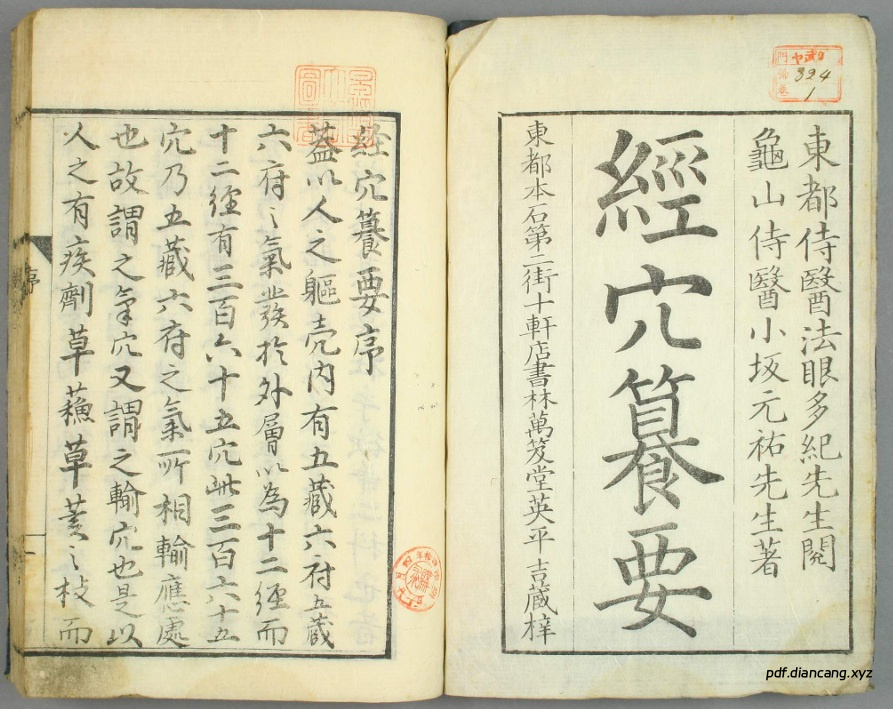 東都侍醫法眼多紀先生閱
龜山侍醫小坂元祐先生著
經穴纂要
東都本石第二街十軒店書林萬笈堂英平吉藏梓
324
1
経穴纂要序
蓋以人之軀壳内有五藏六府五藏
六府之氣發於外層以為十二經而
十二經有三百六十五穴此三百六十五
穴乃五藏六府之氣所相輸應處
也故謂之氣穴又謂之輸穴也是以
人之有疾劑草蘓草荄之枝而
序
pdf.diancang.xyz